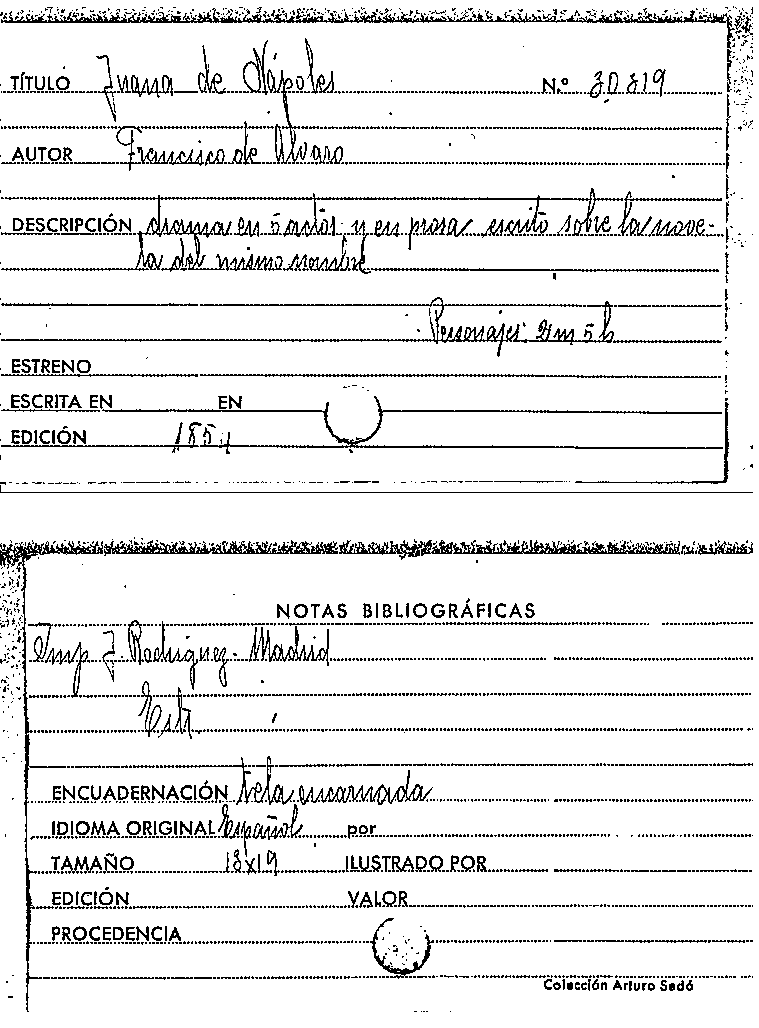 TÍTULO Juana de Nápoles N.º 30819
AUTOR Francisco de Alvaro
DESCRIPCIÓN drama en 5 actos y en prosa escrito sobre la nove-
la del mismo nombre
Personajes: 2m 5h
ESTRENO
ESCRITA EN EN
EDICIÓN 1854
NOTAS BIBLIOGRÁFICAS
Imp J. Rodriguez - Madrid
Estr.
ENCUADERNACIÓN tela encarnada
IDIOMA ORIGINAL Español por
TAMAÑO 13x19 ILUSTRADO POR
EDICIÓN VALOR
PROCEDENCIA
Colección Arturo Sedó